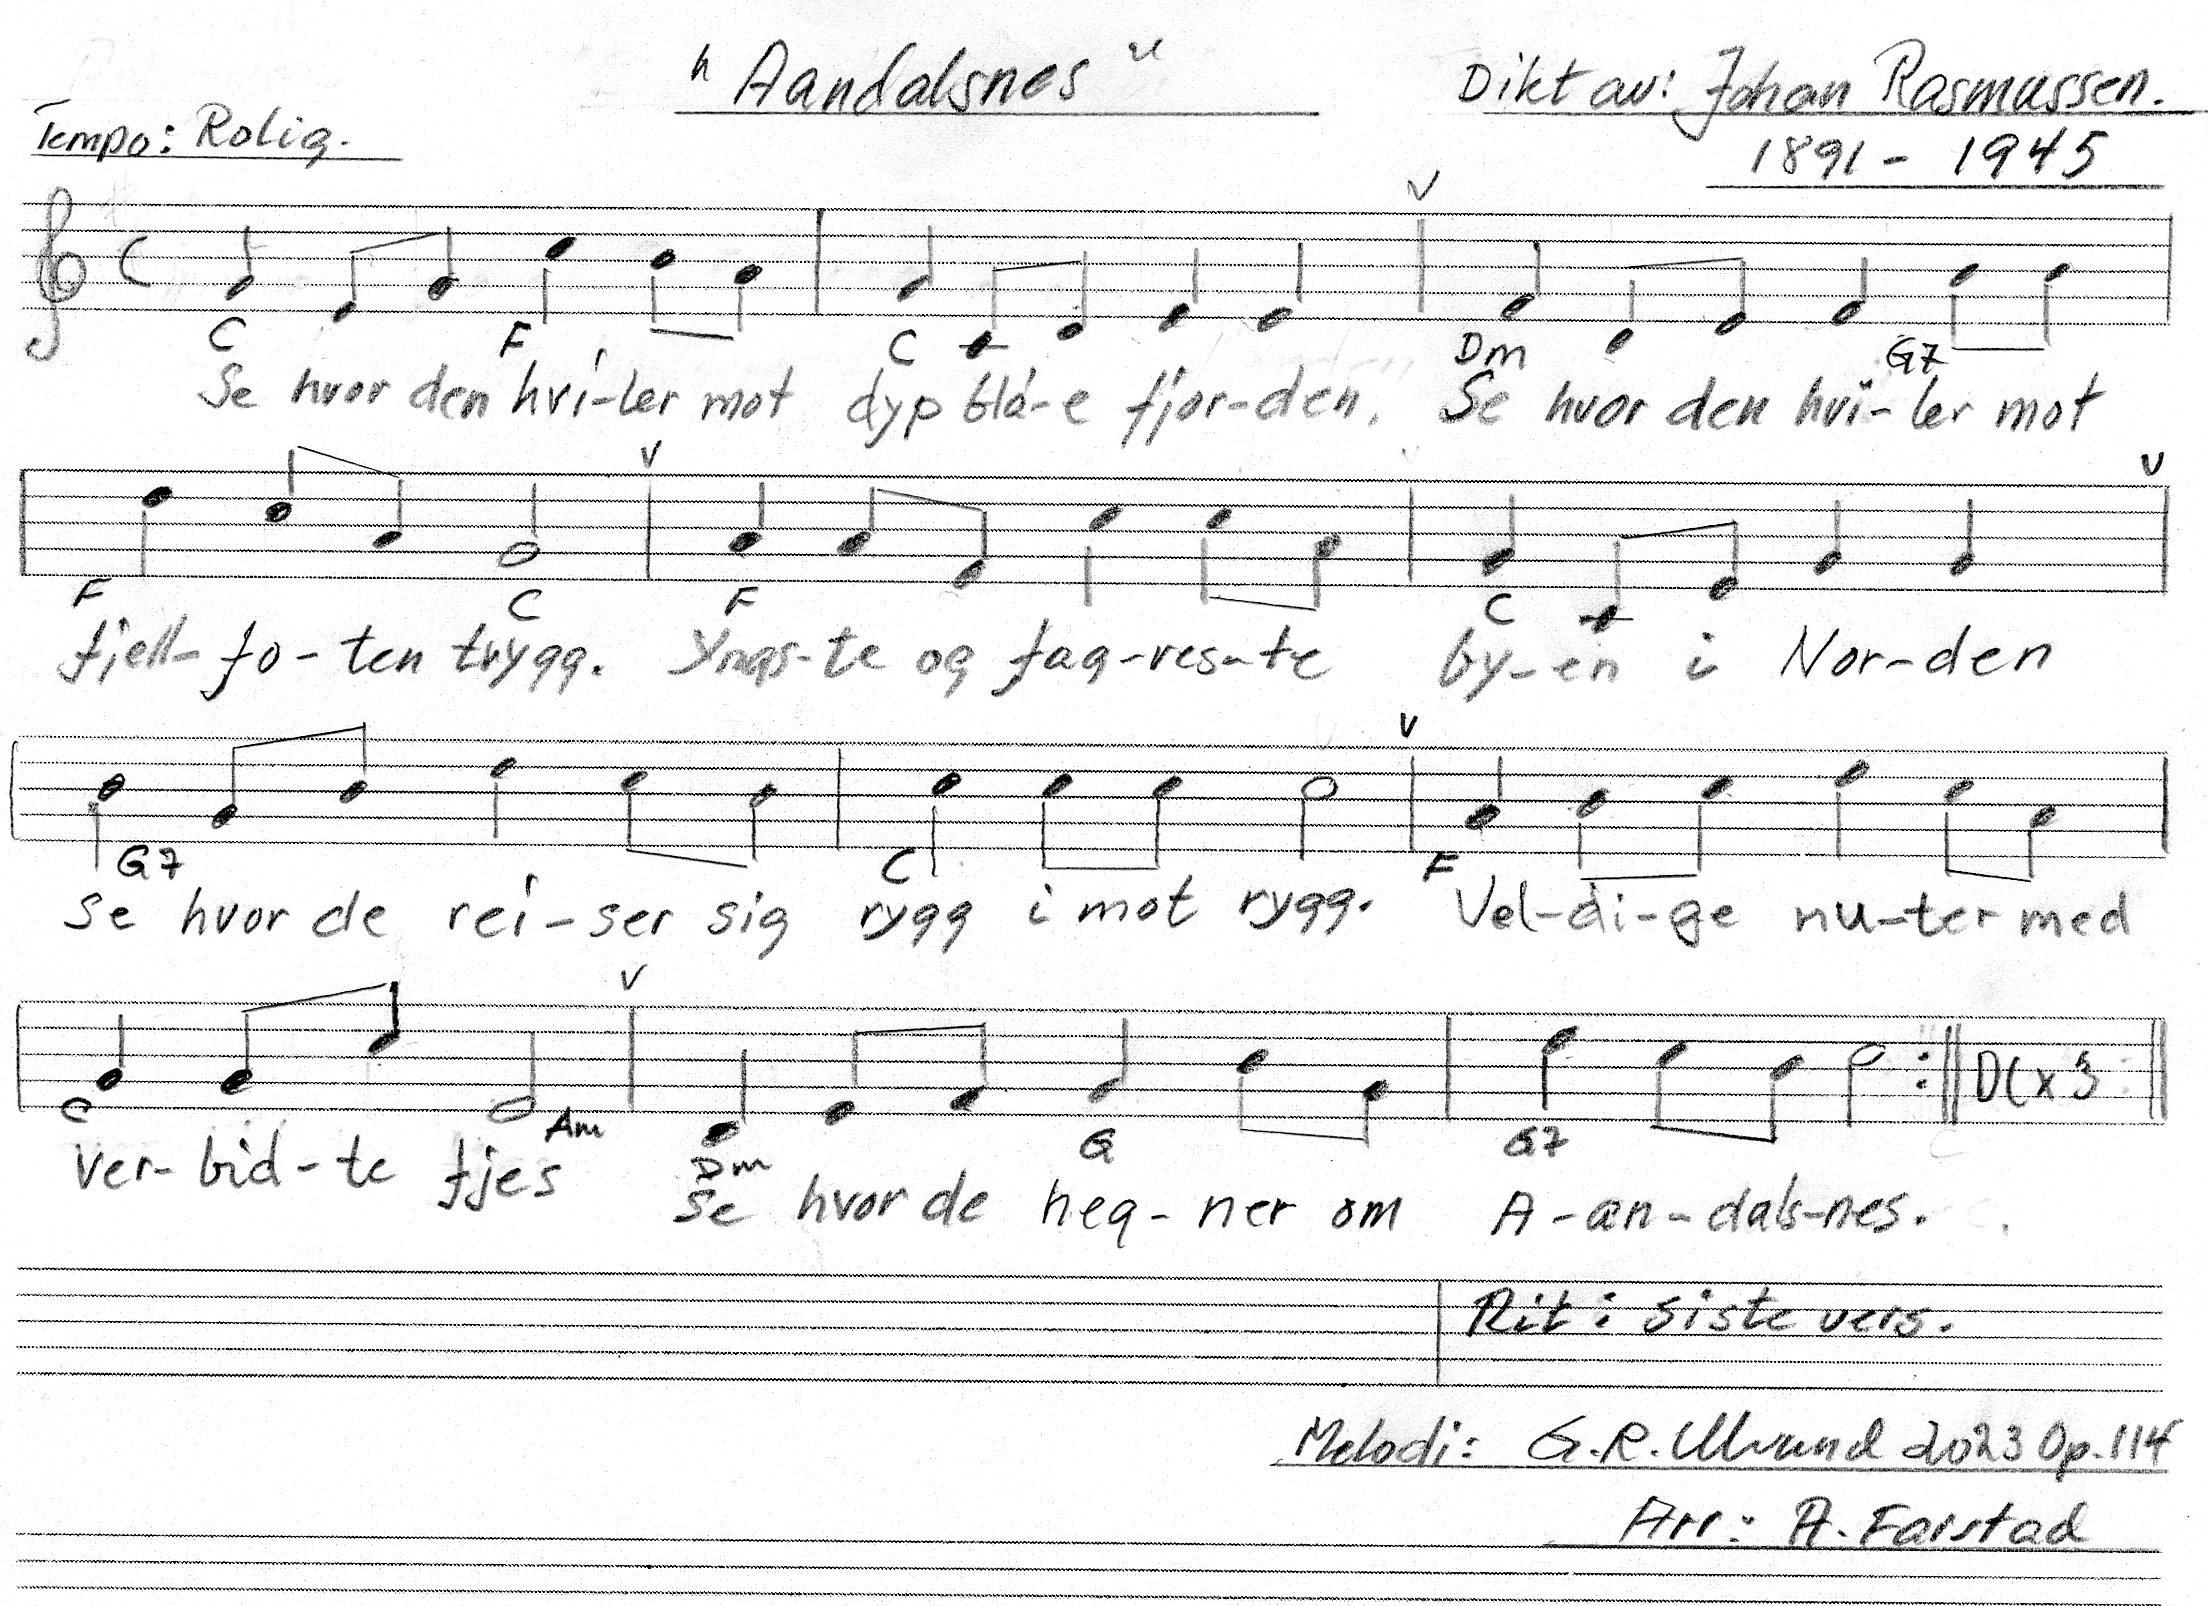 "Aandalsnes"
Dikt av: Johan Rasmussen.
Tempo: Rolig.
1891 - 1945
V
C F C Dm G7
Se hvor den hvi-ler mot dyp blå-e fjor-den. Se hvor den hvi-ler mot
V V
F C F C
fjell-fo-ten trygg. Yngs-te og fag-res-te by-en i Nor-den
V
G7 C F
Se hvor de rei-ser sig rygg i mot rygg. Vel-di-ge nu-ter med
V
DC x 3
C Am Dm G G7
ver-bid-te fjes Se hvor de heg-ner om A-an-dals-nes.
Rit: siste vers.
Melodi: G.R. Ulvund 2023 Op. 114
Arr: A. Farstad